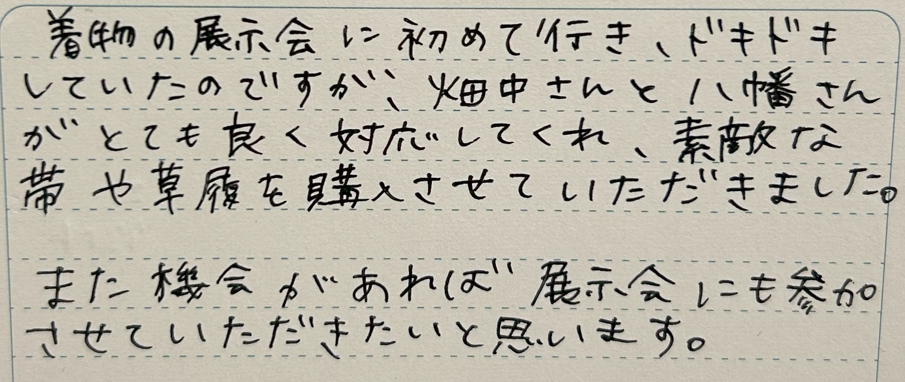 着物の展示会に初めて行き、ドキドキ
していたのですが、畑中さんと八幡さん
がとても良く対応してくれ、素敵な
帯や草履を購入させていただきました。
また機会があれば展示会にも参加
させていただきたいと思います。